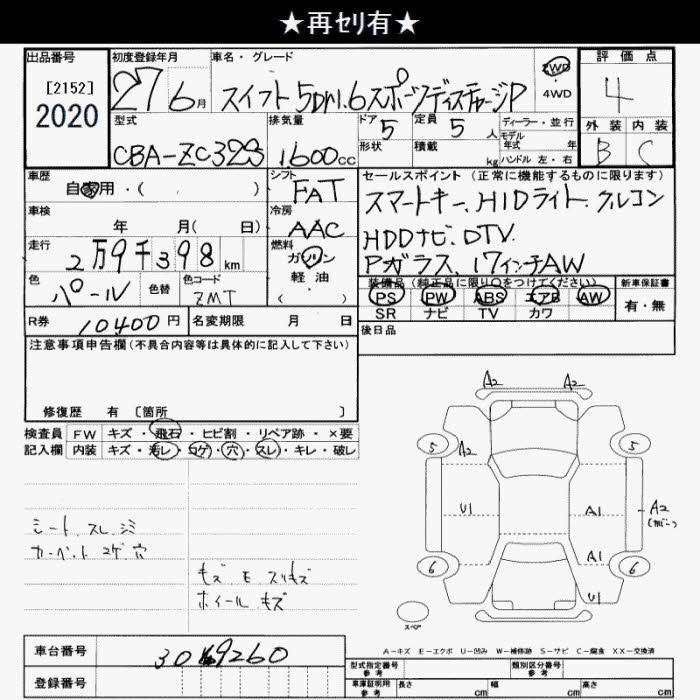 ★再ｾﾘ有★
出品番号 初度登録年月 車名・グレード 評価点
[2152]
2020
27 6月 スイフト 5D 1.6スポーツディスチャージP 2WD 4WD 4
型式 排気量 ドア 定員 ディーラー・並行 外装 内装
CBA-ZC32S 1600cc 5 5人 モデル年式 年 B C
形状 積載 kg ハンドル 左・右
車歴 シフト セールスポイント (正常に機能するものに限ります)
自家用・( ) FAT スマートキー、HIDライト、クルコン
車検 冷房
年 月( 日) AAC HDDナビ、DTV、
走行 燃料
2万9千398km ガソリン Pガラス、17インチAW
色 色替 色コード 軽油 装備品 (純正品に限り○をつけてください) 新車保証書
パール ZMT ( ) PS PW ABS エアB AW 有・無
SR ナビ TV カワ
R券 10400円 名変期限 月 日 後日品
注意事項申告欄(不具合内容等は具体的に記入して下さい)
修復歴 有 〔箇所 〕
検査員 FW キズ・飛石・ヒビ割・リペア跡・×要
記入欄 内装 キズ・汚レ・コゲ・穴・スレ・キレ・破レ
A2 A2
5 A2 5
U1 A1 A2
(ﾐﾆｰ)
A1
6 6
U1
スペア
シート スレ シミ
カーペット コゲ 穴
キズ E スリキズ
ホイール キズ
A－キズ E－エクボ U－凹み W－補修跡 S－サビ C－腐食 XX－交換済
車台番号 型式指定番号 参考 類別区分番号 参考
登録番号 車庫証明用 参考 長さ cm 幅 cm 高さ cm